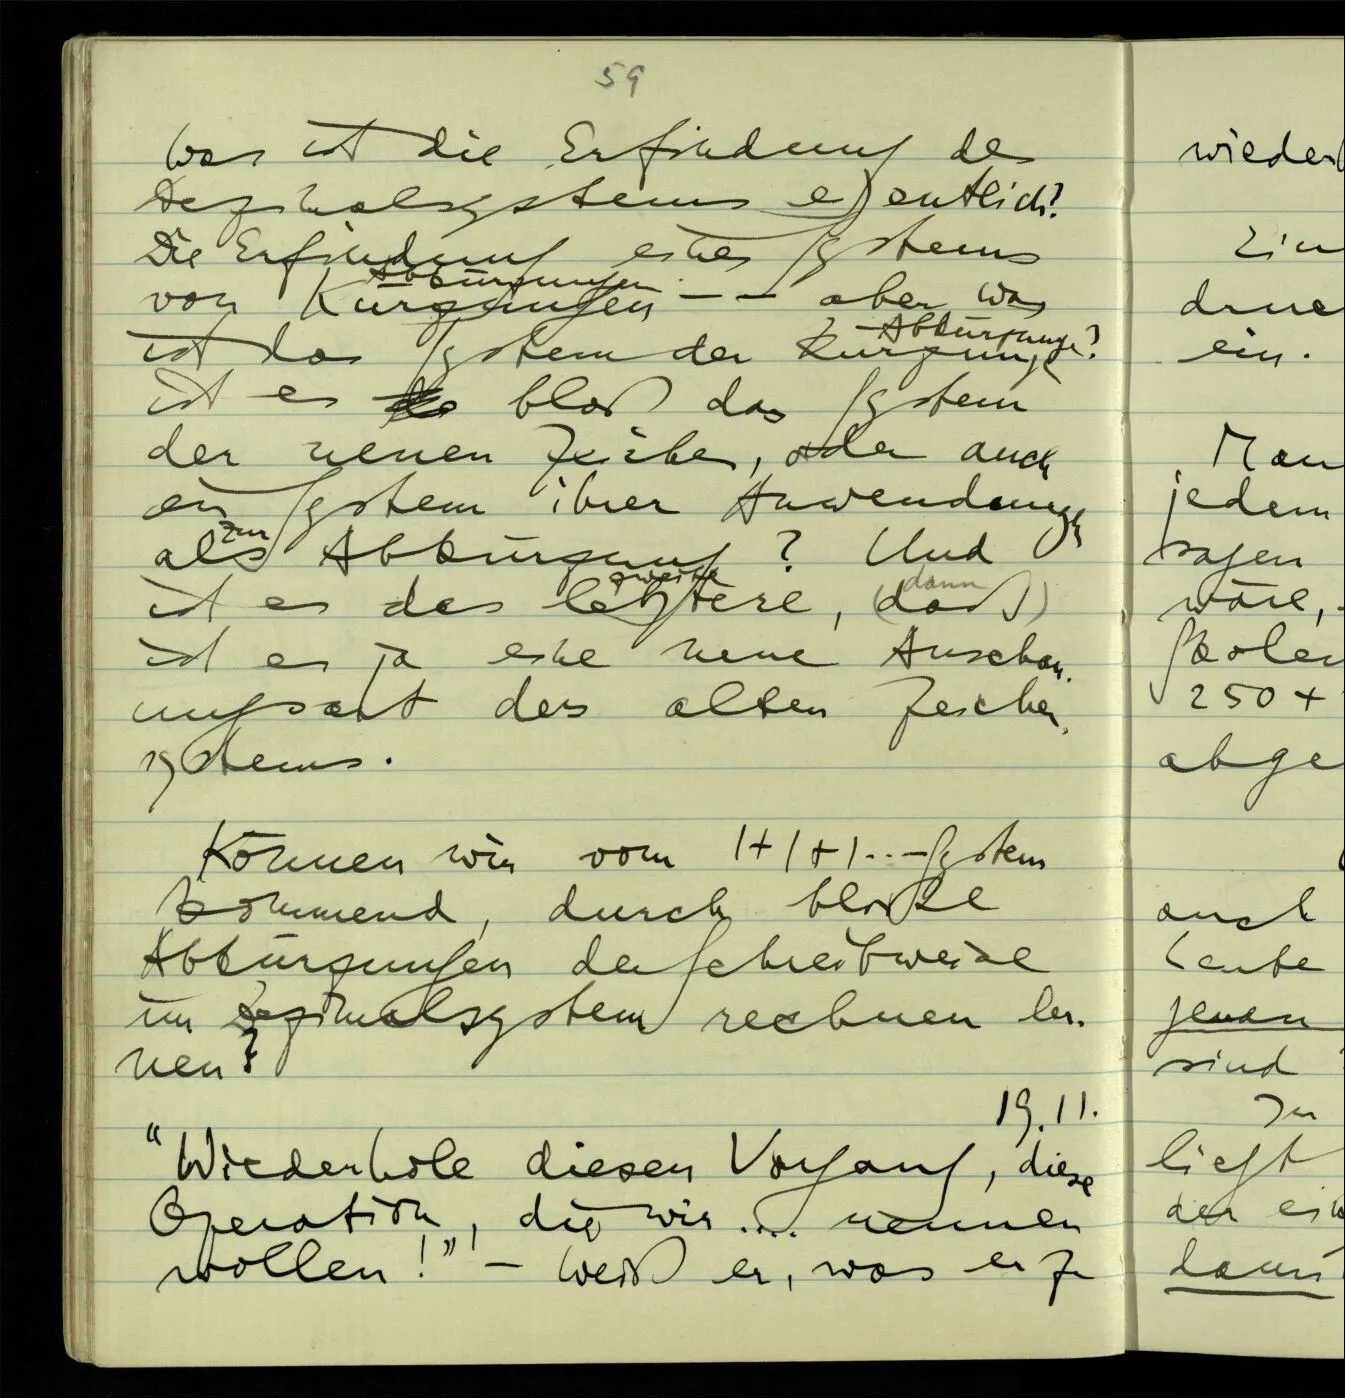 59
Was ist die Erfindung des
Dezimalsystems eigentlich?
Die Erfindung eines Systems
Abkürzungen
von Kürzungen – – aber was
Abkürzungen?
ist das System der Kürzungen
ist es bloß das System
der neuen Zeichen, oder auch
ein System ihrer Anwendungen
zur
als Abkürzung? Und
zweite dann
ist es das letztere, (daß)
ist es ja eine neue Anschau-
ungsart des alten Zeichen-
systems.
Können wir vom 1+1+1..–System
kommend, durch bloße
Abkürzungen der Schreibweise
im Dezimalsystem rechnen ler-
nen?
19.11.
"Wiederhole diesen Vorgang, diese
Operation, die wir .... nennen
wollen!" – Weiß er, was er zu
wieder
Ein
ein.
Man
jedem
sagen
wäre,
250+
abge
auch
heute
genau
sind
In
liegt
der ein